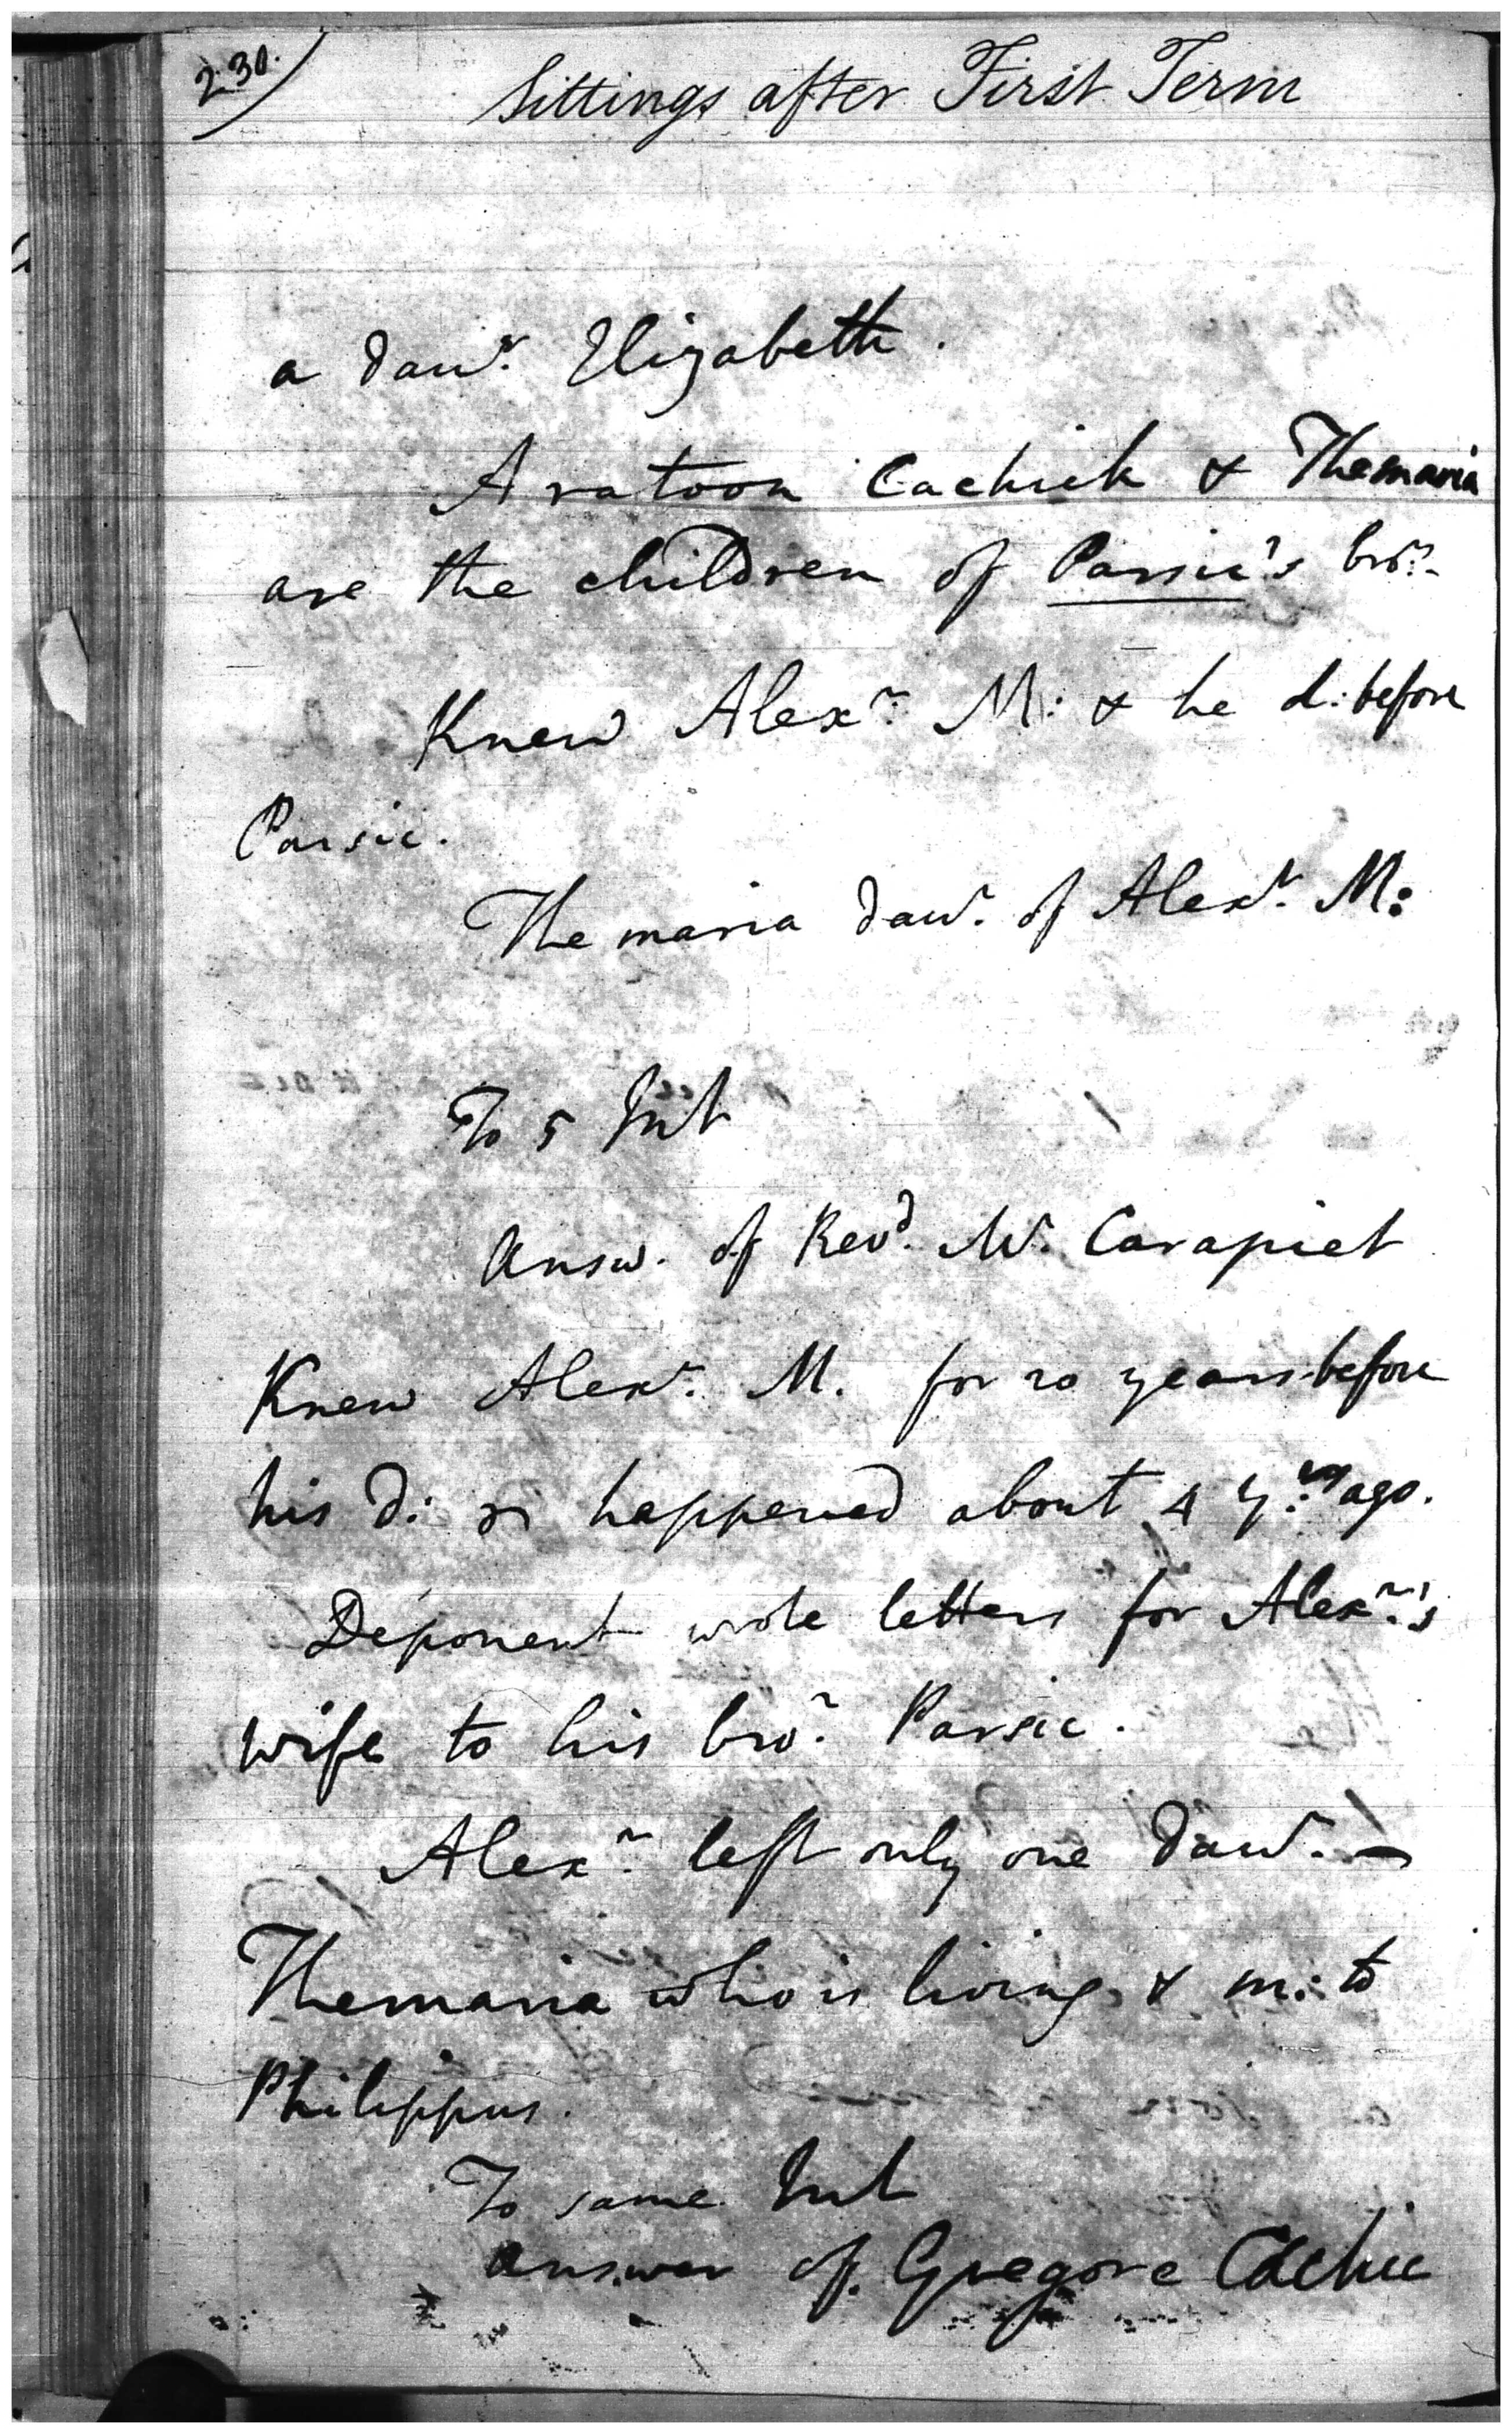 230.
Sittings after First Term
a daur. Elizabeth.
Aratoon Cachick & Themaria
are the children of Parsic's bror.
Knew Alexr. M: & he d: before
Parsic.
Themaria daur. of Alexr. M:
To 5 Int
Answ. of Revd. Mr. Carapiet
Knew Alexr. M. for 20 years before
his d: happened about 4 y:rs ago.
Deponent wrote letters for Alexr.'s
wife to his bror. Parsic.
Alexr. left only one daur. —
Themaria who is living & m: to
Philippus.
To same Int
Answer of Gregore Cachic